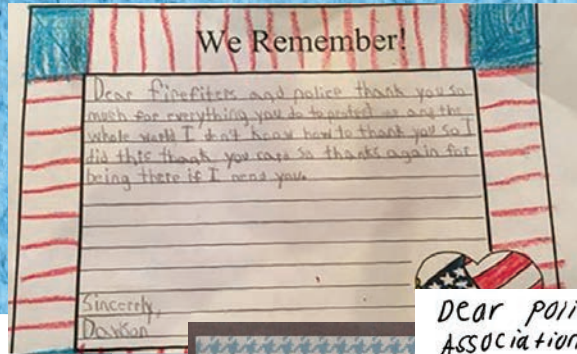 We Remember!
Dear firefiters and police thank you so
much for everything you do to protect us and the
whole world I don't know how to thank you so I
did this thank you card so thanks again for
being there if I need you.
Sincerely,
Dawson
Dear poli
Association